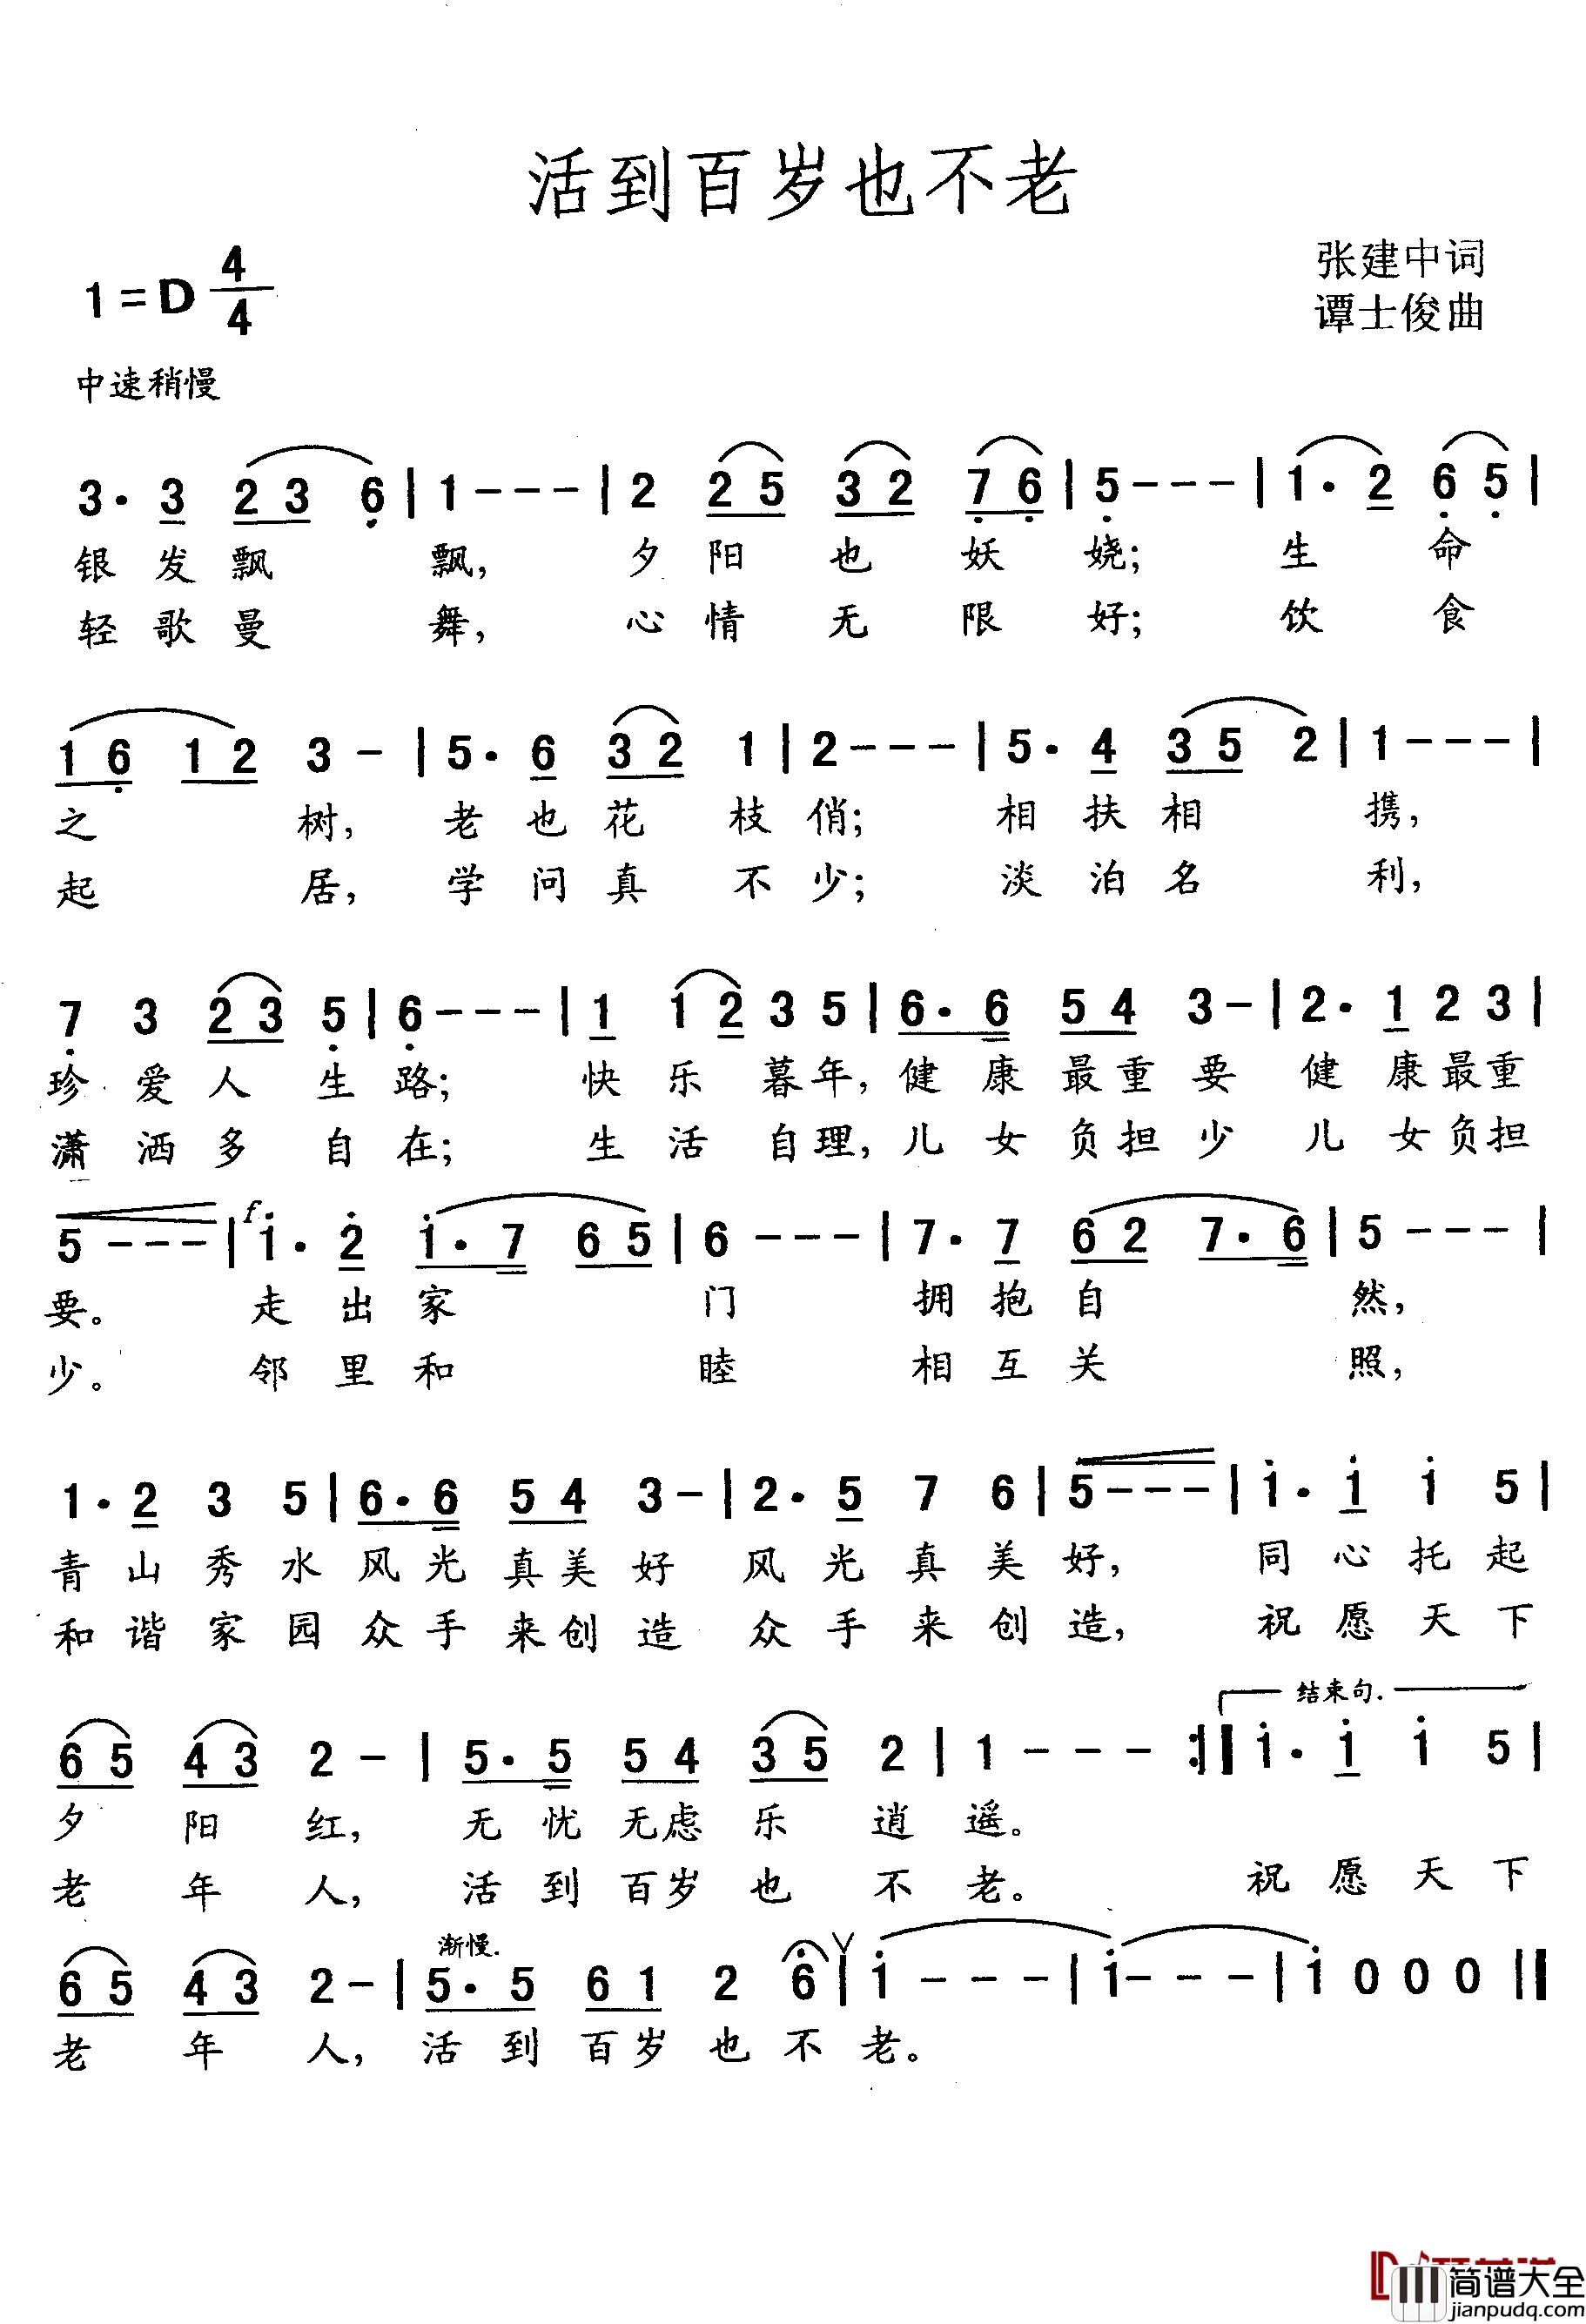 活到百岁也不老
1=D 4/4
张建中词
谭士俊曲
中速稍慢
3· 3 2 3 6 | 1 - - - | 2 2 5 3 2 7 6 | 5 - - - | 1· 2 6 5 |
银发飘 飘, 夕阳也妖 娆; 生 命
轻歌曼 舞, 心情无限 好; 饮 食
1 6 1 2 3 - | 5· 6 3 2 1 | 2 - - - | 5· 4 3 5 2 | 1 - - - |
之 树, 老也花 枝俏; 相扶相 携,
起 居, 学问真 不少; 淡泊名 利,
7 3 2 3 5 | 6 - - - | 1 1 2 3 5 | 6· 6 5 4 3 - | 2· 1 2 3 |
珍爱人 生路; 快乐暮年, 健康最重要 健康最重
潇洒多 自在; 生活自理, 儿女负担少 儿女负担
5 - - - | f 1· 2 1· 7 6 5 | 6 - - - | 7· 7 6 2 7· 6 | 5 - - - |
要。 走出家 门 拥抱自 然,
少。 邻里和 睦 相互关 照,
1· 2 3 5 | 6· 6 5 4 3 - | 2· 5 7 6 | 5 - - - | 1· 1 1 5 |
青山秀水风光真美好 风光真美好, 同心托起
和谐家园众手来创造 众手来创造, 祝愿天下
结束句.
6 5 4 3 2 - | 5· 5 5 4 3 5 2 | 1 - - - :| 1· 1 1 5 |
夕 阳 红, 无忧无虑乐 逍遥。
老 年 人, 活到百岁也 不老。 祝愿天下
渐慢.
6 5 4 3 2 - | 5· 5 6 1 2 6 | 1 - - - | 1 - - - | 1 0 0 0 ‖
老 年 人, 活到百岁也不老。
简谱大全
jianpudq.com